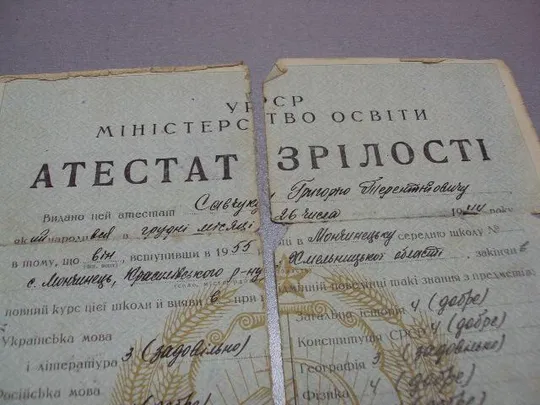 УРСР
МІНІСТЕРСТВО ОСВІТИ
АТЕСТАТ ЗРІЛОСТІ
Видано цей атестат Савчуку Григорію Терентійовичу
який народився в грудні місяці 26 числа 1944 року
в тому, що він, вступивши в 1955 в Мончинецьку середню школу №
с. Мончинець, Красилівського р-ну, Хмельницької області, закінчив
повний курс цієї школи й виявив при поведінці такі знання з предметів:
Українська мова
і література 3 (задовільно)
Російська мова
Загальна історія 4 (добре)
Конституція СРСР 4 (добре)
Географія 3 задовільно
Фізика 4 (добре)
(добре)